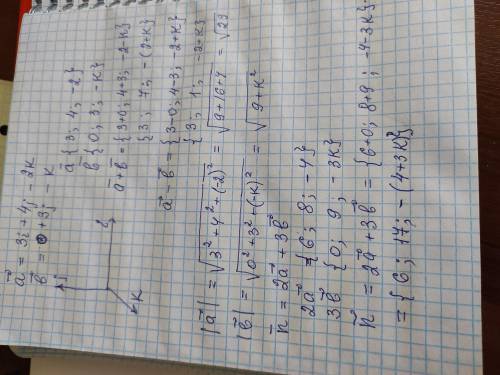 a⃗ = 3i + 4j - 2k
b⃗ = 0 + 3j - k
a⃗ {3; 4; -2}
b⃗ {0; 3; -k}
a⃗ + b⃗ = {3+0; 4+3; -2-k}
{3; 7; -(2+k}
a⃗ - b⃗ = {3-0; 4-3; -2+k}
{3; 1; -2+k}
|a⃗| = √3² + 4² + (-2)² = √9+16+4 = √29
|b⃗| = √0² + 3² + (-k)² = √9 + k²
n⃗ = 2a⃗ + 3b⃗
2a⃗ = {6; 8; -4}
3b⃗ {0; 9; -3k}
n⃗ = 2a⃗ + 3b⃗ = {6+0; 8+9; -4-3k}
= {6; 17; -(4+3k)}
j
k